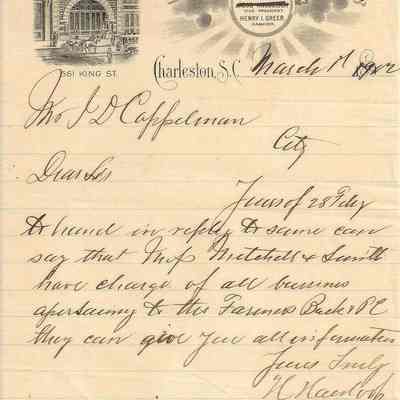 VICE PRESIDENT
HENRY I. GREER
CASHIER.
561 KING ST.
Charleston, S.C. March 1st 1902
J D Cappelman
City
Dear Sir
Yours of 28 Feby
to hand in reply to same can
say that Mess Mitchell & Smith
have charge of all business
apertaining to the Farmers Bank
they can give you all information
Yours Truly